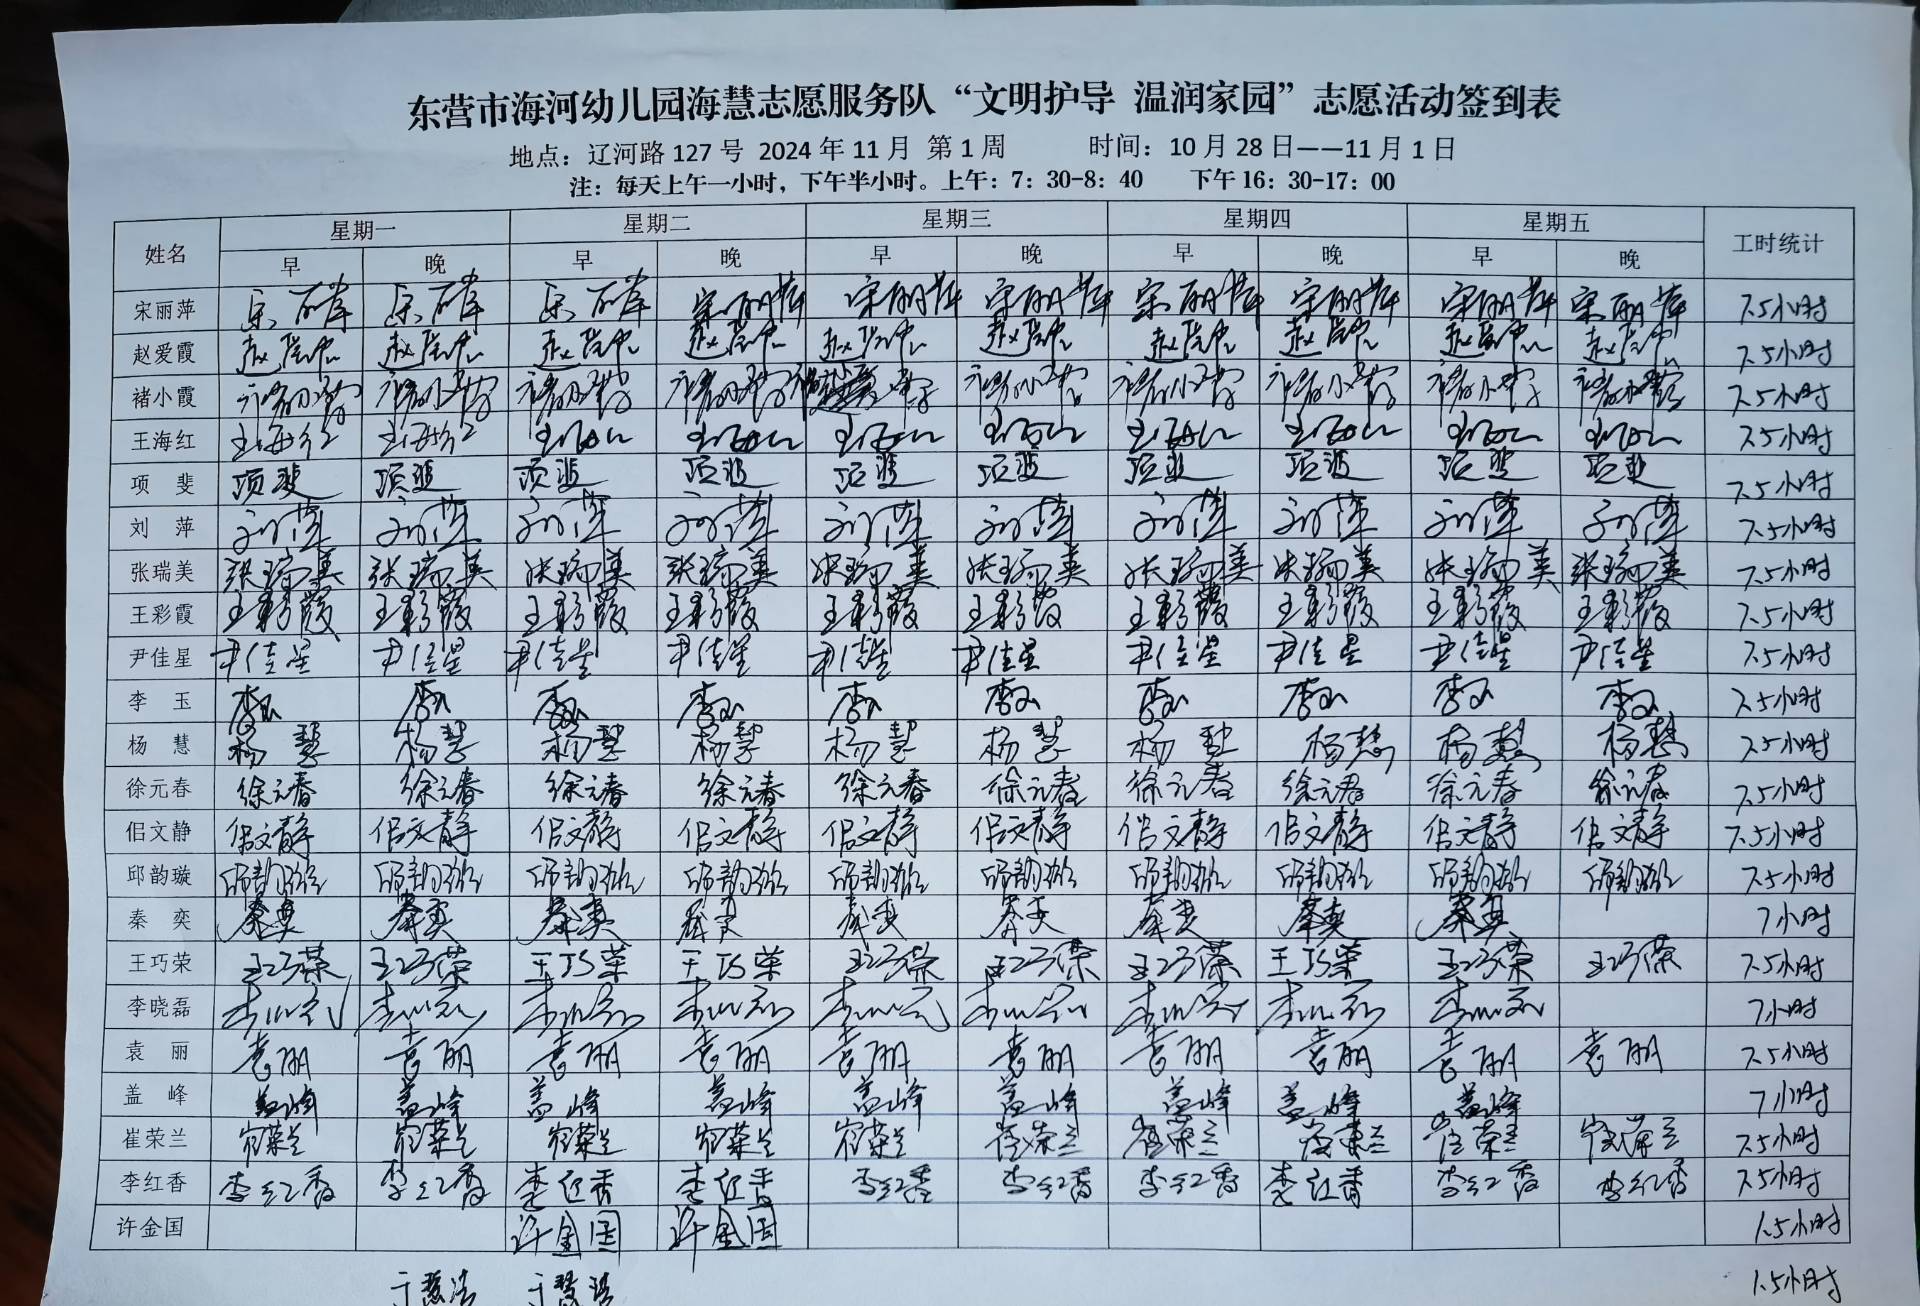 东营市海河幼儿园海慧志愿服务队“文明护导 温润家园”志愿活动签到表
地点：辽河路 127 号 2024 年 11 月 第 1 周 时间：10 月 28 日——11 月 1 日
注：每天上午一小时，下午半小时。上午：7：30-8：40 下午 16：30-17：00
姓名 星期一 星期二 星期三 星期四 星期五 工时统计
早 晚 早 晚 早 晚 早 晚 早 晚
宋丽萍 宋丽萍 宋丽萍 宋丽萍 宋丽萍 宋丽萍 宋丽萍 宋丽萍 宋丽萍 宋丽萍 宋丽萍 7.5小时
赵爱霞 赵爱霞 赵爱霞 赵爱霞 赵爱霞 赵爱霞 赵爱霞 赵爱霞 赵爱霞 赵爱霞 赵爱霞 7.5小时
褚小霞 褚小霞 褚小霞 褚小霞 褚小霞 褚小霞 褚小霞 褚小霞 褚小霞 褚小霞 7.5小时
王海红 王海红 王海红 王海红 王海红 王海红 王海红 王海红 王海红 王海红 王海红 7.5小时
项斐 项斐 项斐 项斐 项斐 项斐 项斐 项斐 项斐 项斐 项斐 7.5小时
刘萍 刘萍 刘萍 刘萍 刘萍 刘萍 刘萍 刘萍 刘萍 刘萍 刘萍 7.5小时
张瑞美 张瑞美 张瑞美 张瑞美 张瑞美 张瑞美 张瑞美 张瑞美 张瑞美 张瑞美 张瑞美 7.5小时
王彩霞 王彩霞 王彩霞 王彩霞 王彩霞 王彩霞 王彩霞 王彩霞 王彩霞 王彩霞 王彩霞 7.5小时
尹佳星 尹佳星 尹佳星 尹佳星 尹佳星 尹佳星 尹佳星 尹佳星 尹佳星 尹佳星 尹佳星 7.5小时
李玉 李玉 李玉 李玉 李玉 李玉 李玉 李玉 李玉 李玉 李玉 7.5小时
杨慧 杨慧 杨慧 杨慧 杨慧 杨慧 杨慧 杨慧 杨慧 杨慧 杨慧 7.5小时
徐元春 徐元春 徐元春 徐元春 徐元春 徐元春 徐元春 徐元春 徐元春 徐元春 徐元春 7.5小时
佀文静 佀文静 佀文静 佀文静 佀文静 佀文静 佀文静 佀文静 佀文静 佀文静 佀文静 7.5小时
邱韵璇 邱韵璇 邱韵璇 邱韵璇 邱韵璇 邱韵璇 邱韵璇 邱韵璇 邱韵璇 邱韵璇 邱韵璇 7.5小时
秦奕 秦奕 秦奕 秦奕 秦奕 秦奕 秦奕 秦奕 秦奕 秦奕 7小时
王巧荣 王巧荣 王巧荣 王巧荣 王巧荣 王巧荣 王巧荣 王巧荣 王巧荣 王巧荣 王巧荣 7.5小时
李晓磊 李晓磊 李晓磊 李晓磊 李晓磊 李晓磊 李晓磊 李晓磊 李晓磊 李晓磊 7小时
袁丽 袁丽 袁丽 袁丽 袁丽 袁丽 袁丽 袁丽 袁丽 袁丽 袁丽 7.5小时
盖峰 盖峰 盖峰 盖峰 盖峰 盖峰 盖峰 盖峰 盖峰 盖峰 7小时
崔荣兰 崔荣兰 崔荣兰 崔荣兰 崔荣兰 崔荣兰 崔荣兰 崔荣兰 崔荣兰 崔荣兰 崔荣兰 7.5小时
李红香 李红香 李红香 李红香 李红香 李红香 李红香 李红香 李红香 李红香 李红香 7.5小时
许金国 许金国 许金国 1.5小时
1.5小时